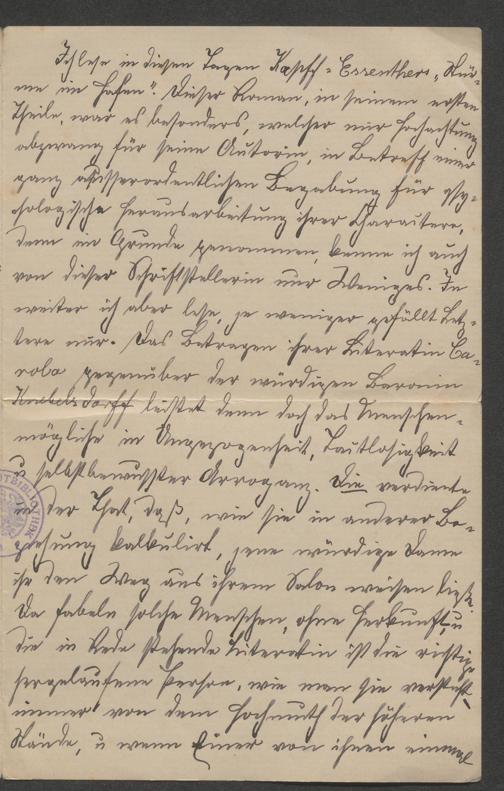 Ich lese in diesen Tagen Kapff-Essenthers „Stür-
me im Hafen". Dieser Roman, in seinem ersten
Theile, war es besonders, welcher mir Hochachtung
abzwang für seine Autorin, in Betreff einer
ganz ausserordentlichen Begabung für psy-
chologische Herausarbeitung ihrer Charactere,
denn im Grunde genommen, kenne ich auch
von dieser Schriftstellerin nur Weniges. Je
weiter ich aber lese, je weniger gefällt Letz-
tere mir. Das Betragen ihrer Literatin Ca-
rola gegenüber der würdigen Baronin
Knebelsdorff leistet denn doch das Menschen-
mögliche in Ungezogenheit, Taktlosigkeit
u selbstbewusster Arroganz. Die verdiente
in der That, daß, wie sie in anderer Be-
ziehung kalkulirt, jene würdige Dame
ihr den Weg aus ihrem Salon weisen ließe.
Da fabeln solche Menschen, ohne Herkunft, u
die in Rede stehende Literatin ist die richtige
hergelaufene Person, wie man sie versteht,
immer von dem Hochmuth der höheren
Stände, u wenn Einer von ihnen einmal